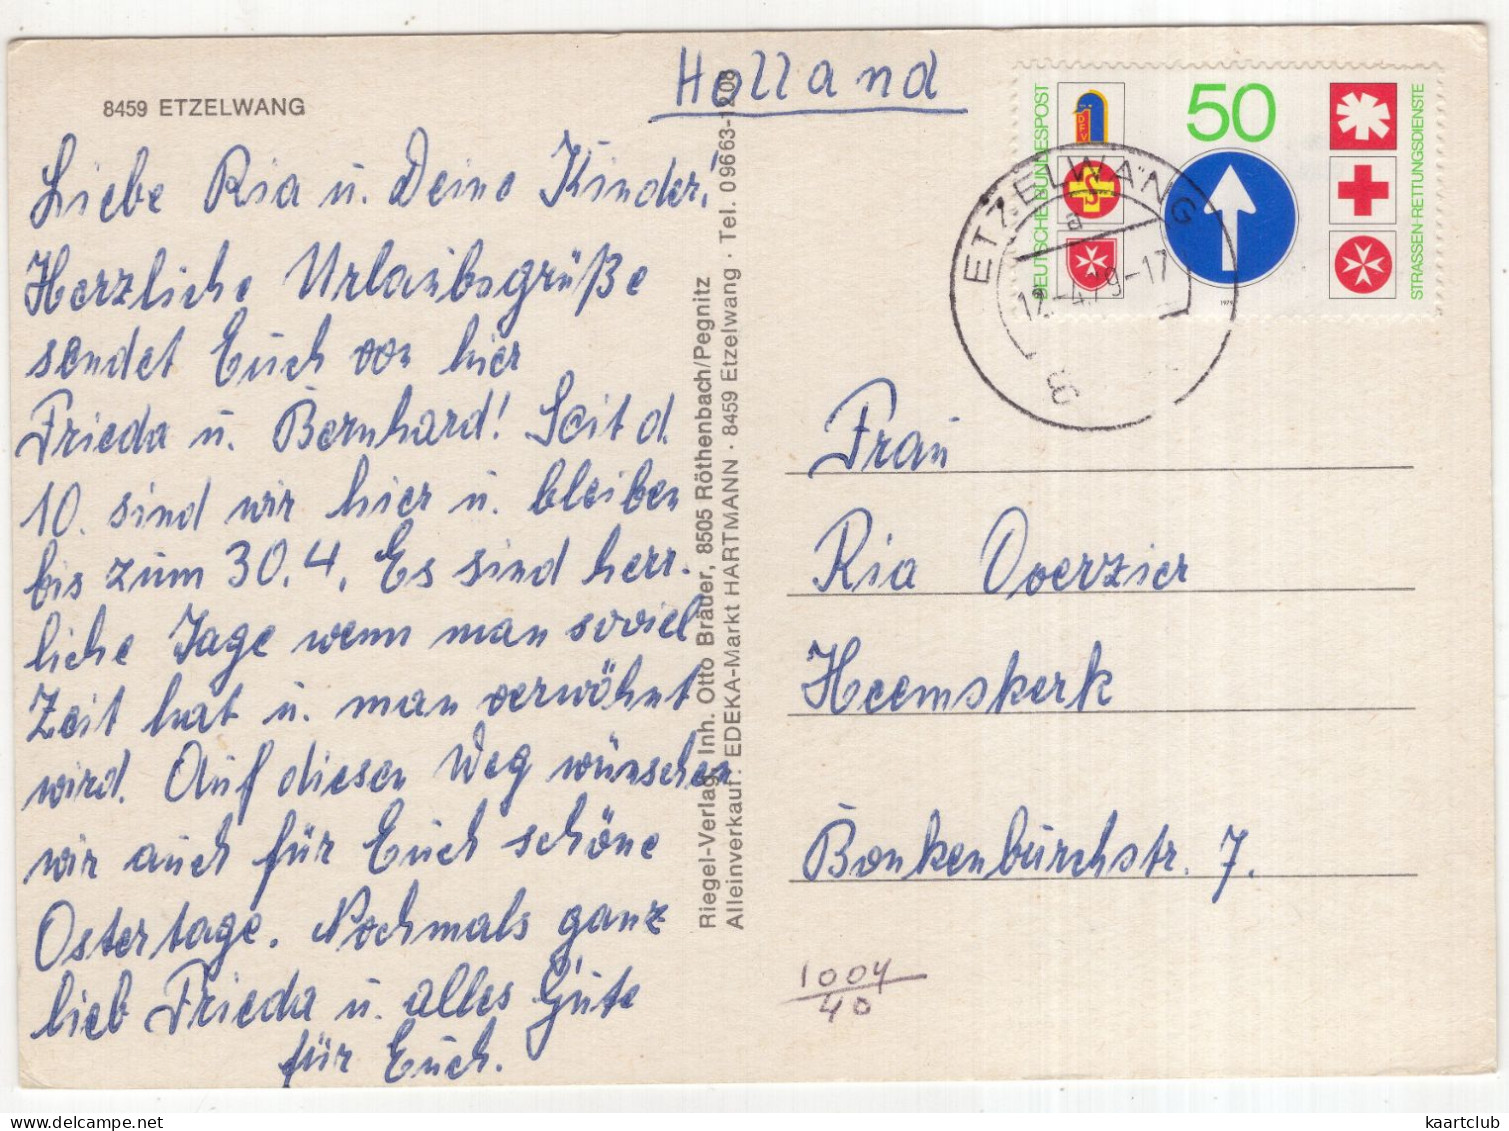 8459 ETZELWANG
Liebe Ria u. Deine Kinder!
Herzliche Urlaubsgrüße
sendet Euch von hier
Frieda u. Bernhard! Seit d.
10. sind wir hier u. bleiben
bis zum 30.4. Es sind herr-
liche Tage wenn man soviel
Zeit hat u. man verwöhnt
wird. Auf diesen Weg wünschen
wir auch für Euch schöne
Ostertage. Nochmals ganz
lieb Frieda u. alles Gute
für Euch.
Riegel-Verlag, Inh. Otto Bräuer, 8505 Röthenbach/Pegnitz
Alleinverkauf: EDEKA-Markt HARTMANN · 8459 Etzelwang · Tel. 09663-1208
Holland
DEUTSCHE BUNDESPOST
DFV
S
50
1979
STRASSEN-RETTUNGSDIENSTE
ETZELWANG
a
12.-4.79-17
Frau
Ria Overzier
Heemskerk
Bonkenburchstr. 7.
1004
40
kaartclub